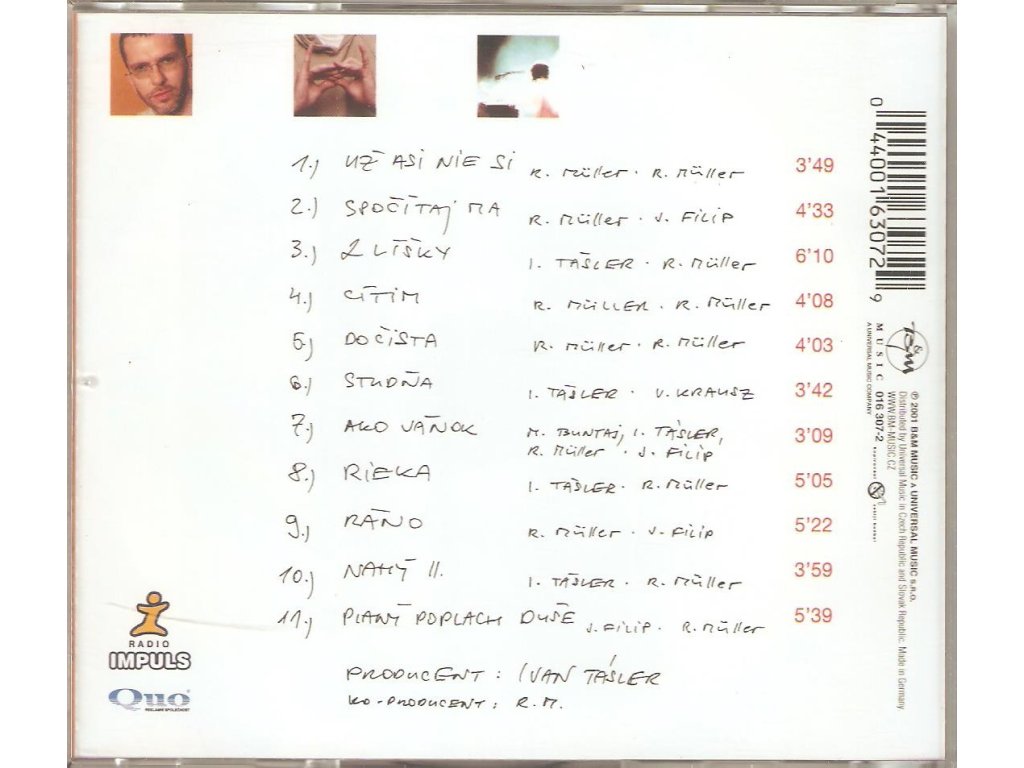 1.) UŽ ASI NIE SI R. Müller · R. Müller 3'49
2.) SPOČÍTAJ MA R. Müller · J. FILIP 4'33
3.) 2 LÍŠKY I. TÁSLER · R. Müller 6'10
4.) CÍTIM R. MÜLLER · R. Müller 4'08
5.) DOČISTA R. Müller · R. Müller 4'03
6.) STUDŇA I. TÁSLER · V. KRAUSZ 3'42
7.) AKO VÁNOK M. BUNTAJ, I. TÁSLER, 3'09
R. Müller · J. FILIP
8.) RIEKA I. TÁSLER · R. Müller 5'05
9.) RÁNO R. Müller · J. FILIP 5'22
10.) NAHÝ II. I. TÁSLER · R. Müller 3'59
11.) PIANÝ POPLACH DUŠE J. FILIP · R. Müller 5'39
PRODUCENT : IVAN TÁSLER
KO-PRODUCENT : R.M.
RADIO
IMPULS
Quo
REKLAMNÍ SPOLEČNOST
0 44001 63072 9
B&M
MUSIC
A UNIVERSAL MUSIC COMPANY
016 307-2
℗ 2001 B&M MUSIC A UNIVERSAL MUSIC s.r.o.
Distributed by Universal Music in Czech Republic and Slovak Republic. Made in Germany.
WWW.BM-MUSIC.CZ